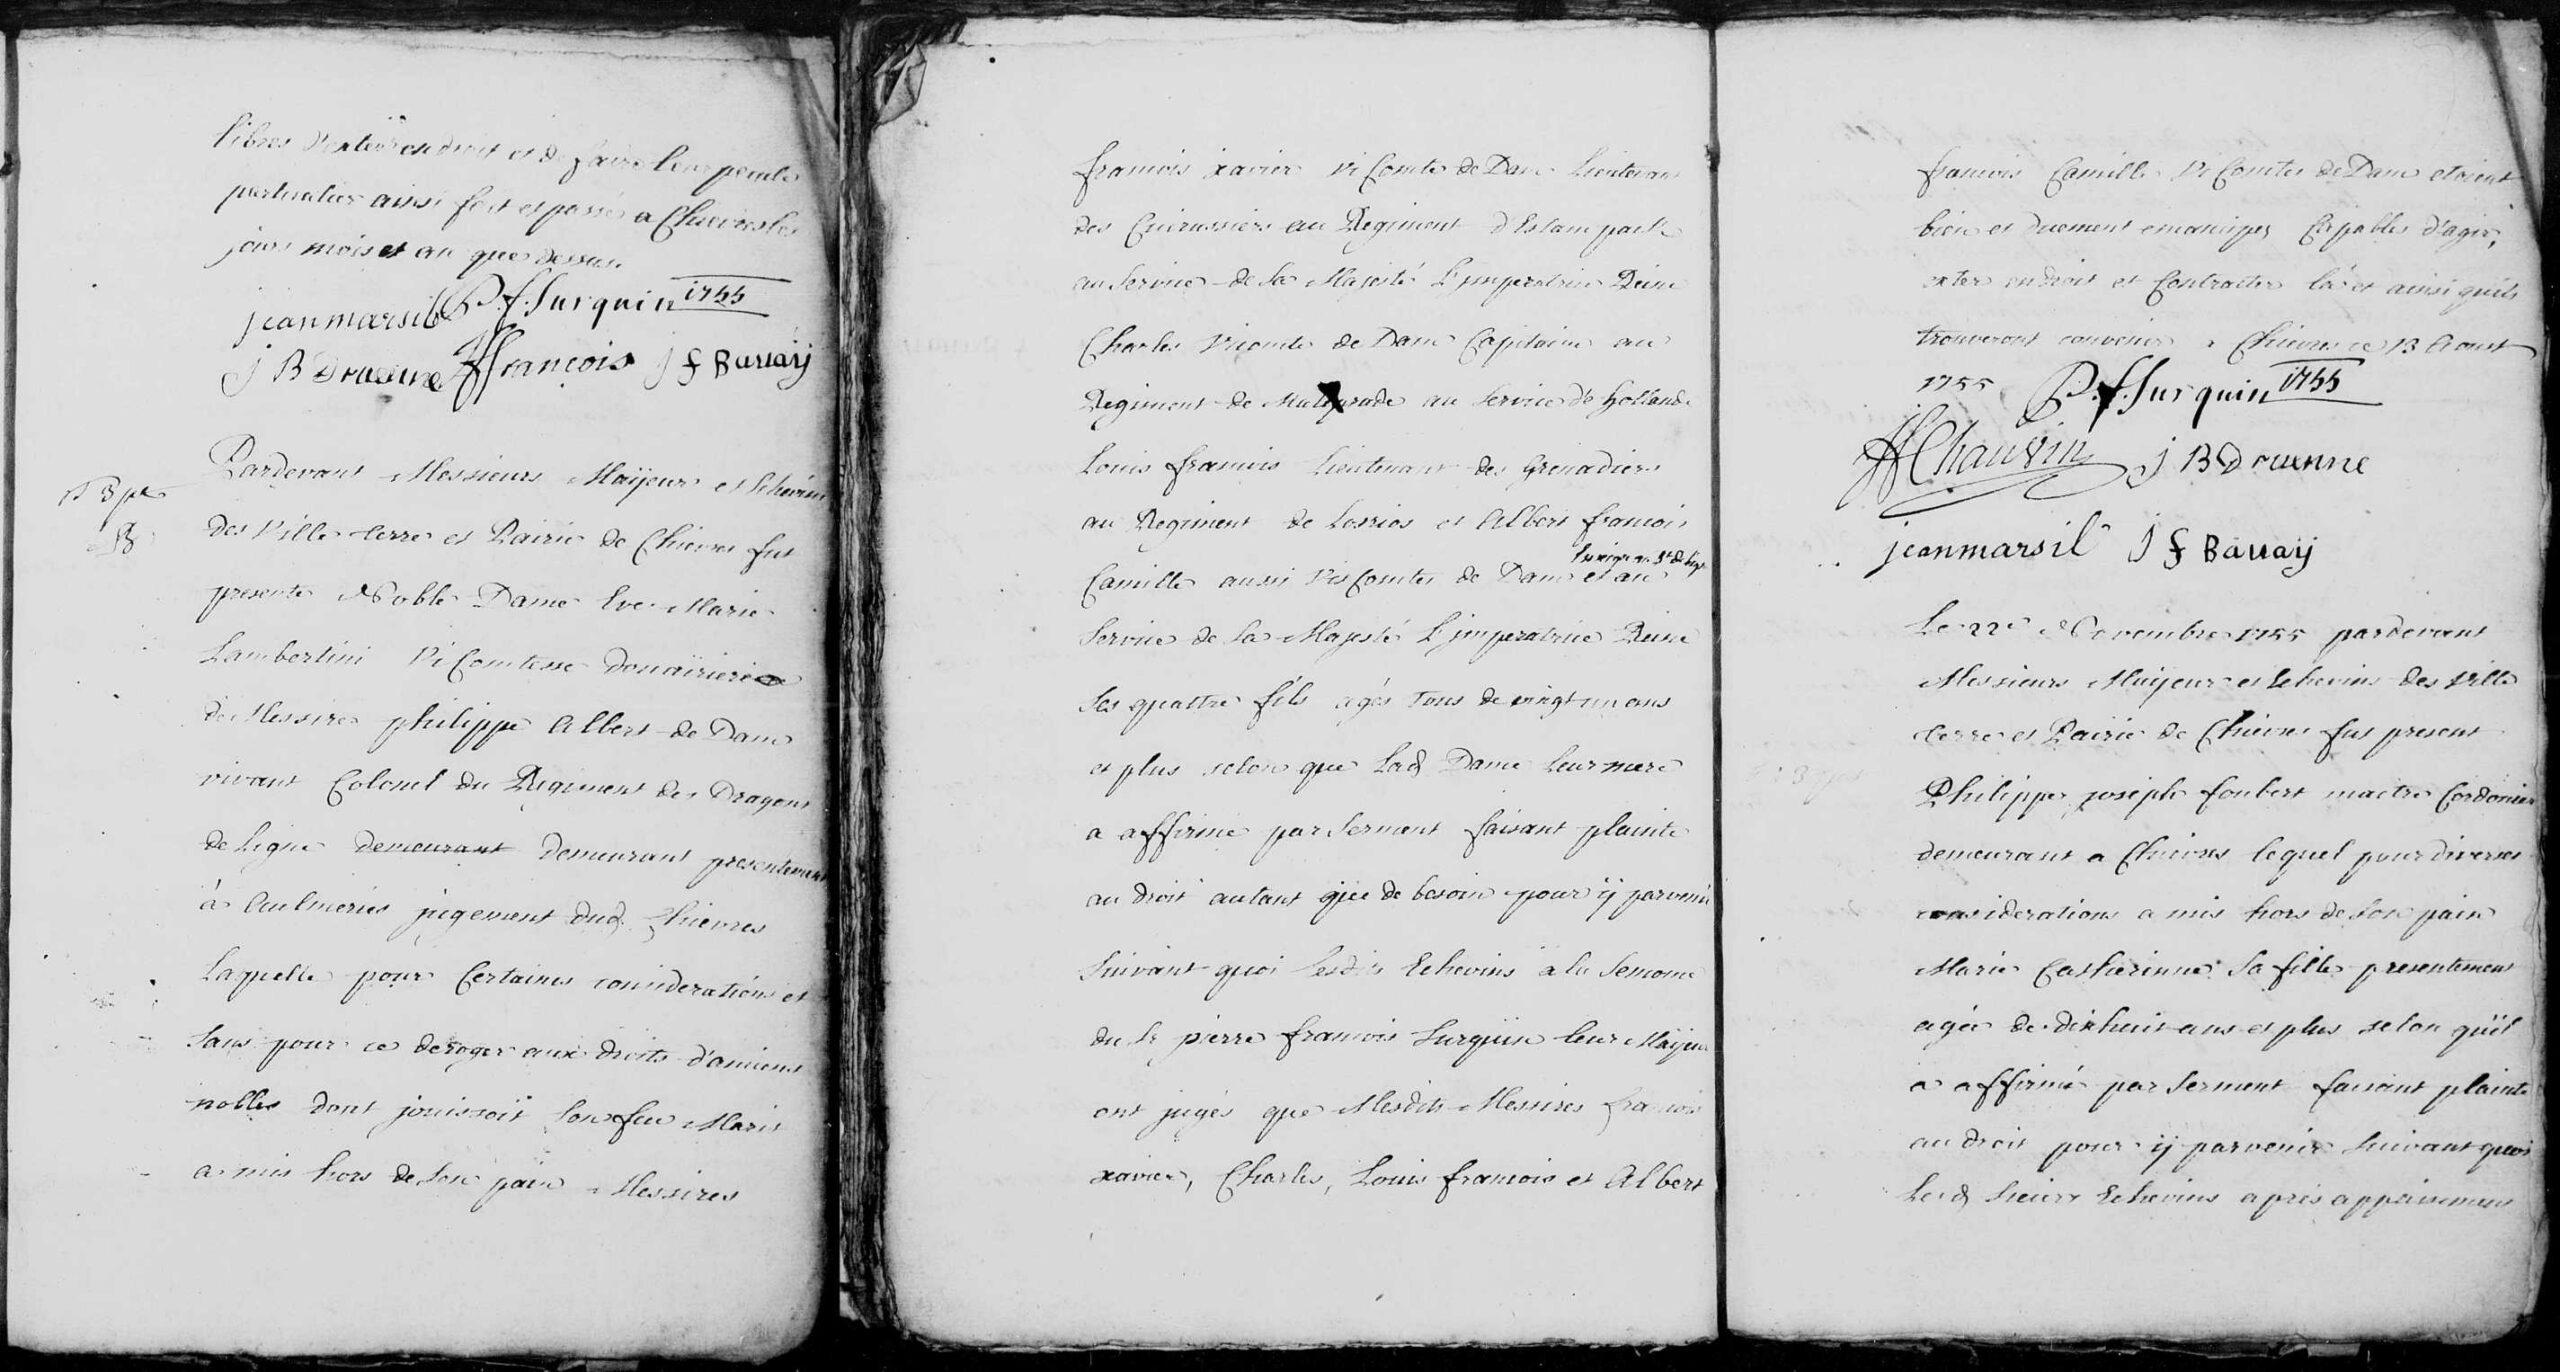 libres d'ester en droit et de faire leur pecule
particulier ainsi fait et passé a Chievres les
jour mois et an que dessus.
jean marsil P. f. Surquin 1755
J B Drausme François J f Bauaij
Pardevant Messieurs Maijeur et Echevins
des Ville terre et Pairie de Chievres fut
presente Noble Dame Eve Marie
Lambertini ViComtesse douairiere
de Messire philippe Albert de Dam
vivant Colonel du Regiment des Dragons
de Ligne demeurant demeurant presentement
à Aulmeries jugement dud. Chievres
Laquelle pour Certaines considerations et
sans pour ce deroger aux droits d'anciens
nobles dont jouissoit son feu Maris
a mis hors de son pain Messires
francois xavier ViComte de Dam Lieutenant
des Cuirassiers au Regiment d'
au Service de Sa Majesté L'jmperatrice Reine
Charles Vicomte de Dam Capitaine au
Regiment de au Service d'Hollande
Louis francois Lieutenant des Grenadiers
au Regiment de Losrios et Albert francois
Camille aussi VisComte de Dam et au
Service de Sa Majesté L'jmperatrice Reine
Ses quattre fils agés tous de vingt un ans
et plus selon que Lad. Dame leur mere
a affirmé par Serment faisant plainte
au droit autant que de besoin pour ij parvenir
Suivant quoi lesdits Echevins a la Semonce
du Sr pierre francois Surquin leur Maijeur
ont jugés que Mesdits Messires francois
xavier, Charles, Louis francois et Albert
francois Camille ViComtes de Dam etoient
bien et duement emancipes Capables d'agir,
ester en droit et Contracter là et ainsi qu'ils
trouveront convenir a Chievres ce 13 Aoust
1755 P. f. Surquin 1755
Chauvin J B Drausme
jean marsil J f Bauaij
Le 22e Novembre 1755 pardevant
Messieurs Maijeur et Echevins des Ville
terre et Pairie de Chievres fut present
Philippe joseph foubert maitre Cordonier
demeurant a Chievres lequel pour diverses
considerations a mis hors de son pain
Marie Catherinne sa fille presentement
agée de dixhuit ans et plus selon qu'il
a affirmé par Serment faisant plainte
au droit pour ij parvenir Suivant quoi
Lesd. Sieurs Echevins apres appaisement